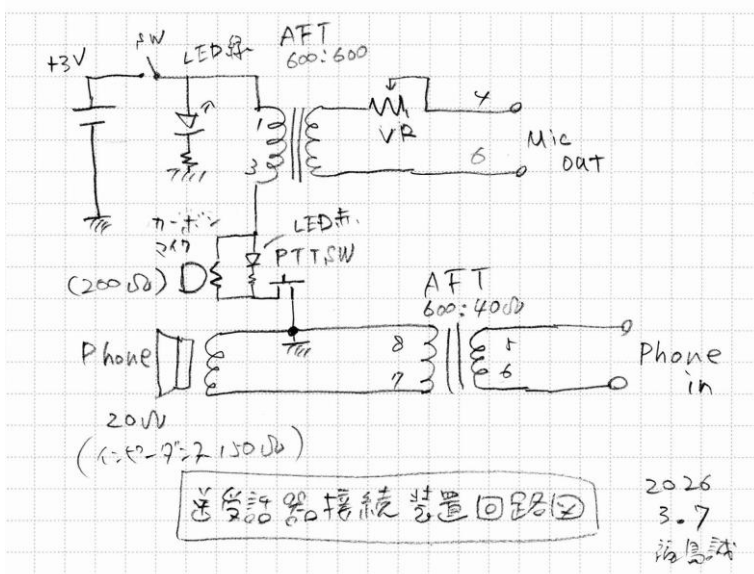 +3V
SW
LED緑
AFT
600:600
1
3
VR
4
6
Mic
out
カーボン
マイク
(200Ω)
LED赤
PTT,SW
AFT
600:40Ω
Phone
8
7
5
6
Phone
in
20Ω
(インピーダンス150Ω)
送受話器接続装置回路図
2026
3.7